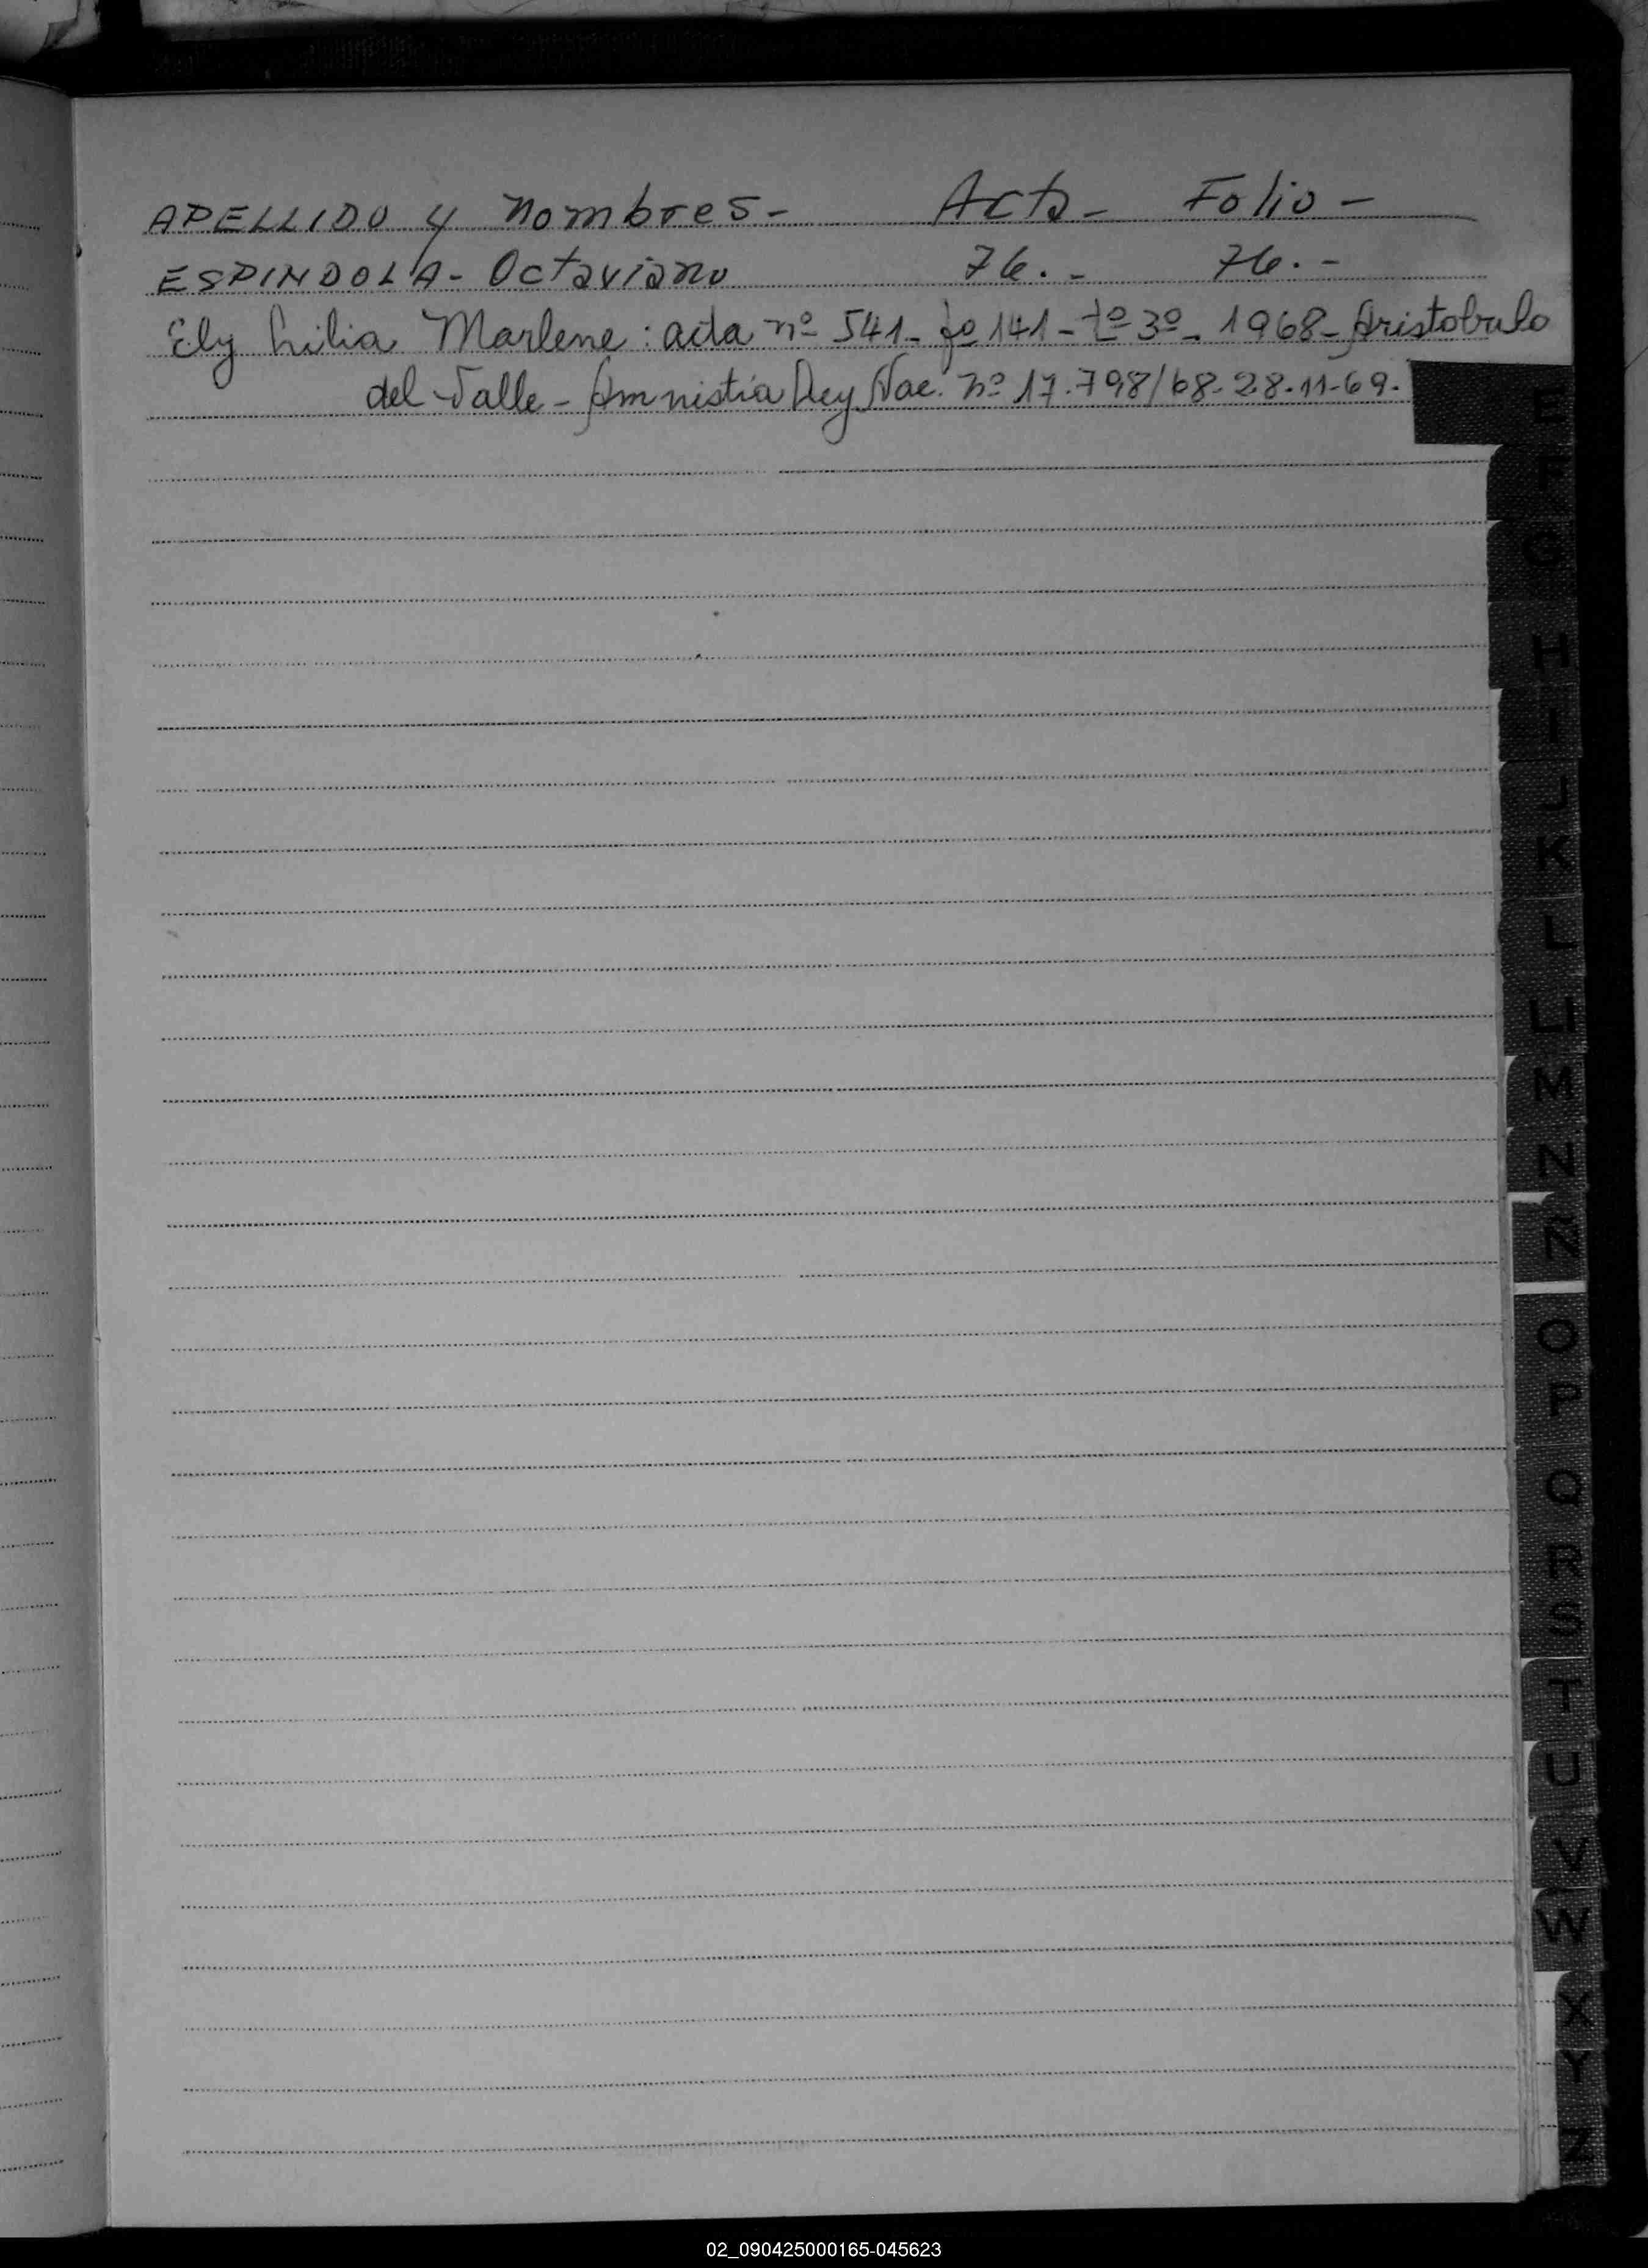 APELLIDO y nombres- Acta- Folio-
ESPINDOLA- Octaviano 76.- 76.-
Ely Lilia Marlene: acta nº 541- fº 141- tº 3º- 1968- Aristobulo
del Valle- Amnistía Ley Nac. nº 17.798/68- 28-11-69.
E
F
G
H
I
J
K
L
Ll
M
N
Ñ
O
P
Q
R
S
T
U
V
W
X
Y
Z
02_090425000165-045623